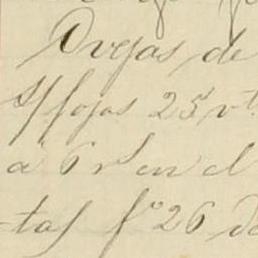 Ovejas de
s/fojas 25 vt
a 6 rs en el
tas fo 26 de